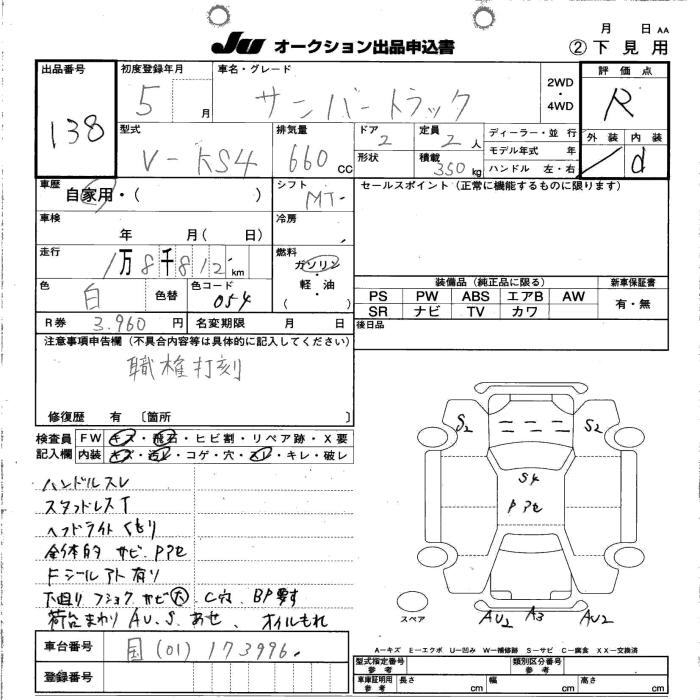 JU オークション出品申込書
月 日 AA
② 下見用
出品番号 138
初度登録年月 5 月
車名・グレード サンバートラック
2WD・4WD
評価点 R
外装 ／ 内装 d
型式 V-KS4
排気量 660 CC
ドア 2
定員 2 人
形状
積載 350 kg
ディーラー・並行
モデル年式 年
ハンドル 左・右
車歴 自家用・( )
シフト MT
セールスポイント（正常に機能するものに限ります）
車検 年 月( 日)
冷房
走行 1万8千812 km
燃料 ガソリン・軽・油 ( )
色 白 色替
色コード 054
装備品（純正品に限る）
新車保証書
PS PW ABS エアB AW
有・無
SR ナビ TV カワ
R券 3.960 円
名変期限 月 日
後日品
注意事項申告欄（不具合内容等は具体的に記入してください）
職権打刻
修復歴 有 〔箇所 〕
検査員記入欄
FW キズ・飛石・ヒビ割・リペア跡・X要
内装 キズ・汚レ・コゲ・穴・スレ・キレ・破レ
ハンドルスレ
スタッドレスT
ヘッドライトくもり
全体的サビ.Pアセ
Fシールアト有り
下廻りフショクサビ大 C穴 BP要す
荷台まわりAU.S.あせ、オイルもれ
S2 S2
S4
Pアセ
スペア
AU2 A3 AU2
車台番号 国(01)173996
登録番号
A-キズ E-エクボ U-凹み W-補修跡 S-サビ C-腐食 XX-交換済
型式指定番号 参考
類別区分番号 参考
車庫証明用 参考 長さ cm 幅 cm 高さ cm